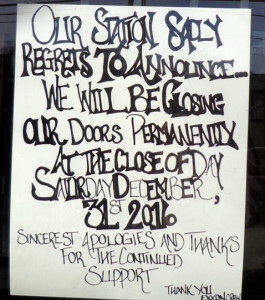 OUR STATION SADLY
REGRETS TO ANNOUNCE...
WE WILL BE CLOSING
OUR DOORS PERMANENTLY
AT THE CLOSE OF DAY
SATURDAY DECEMBER,
31ST 2016
SINCEREST APOLOGIES AND THANKS
FOR THE CONTINUED
SUPPORT
THANK YOU
EXXON CREW